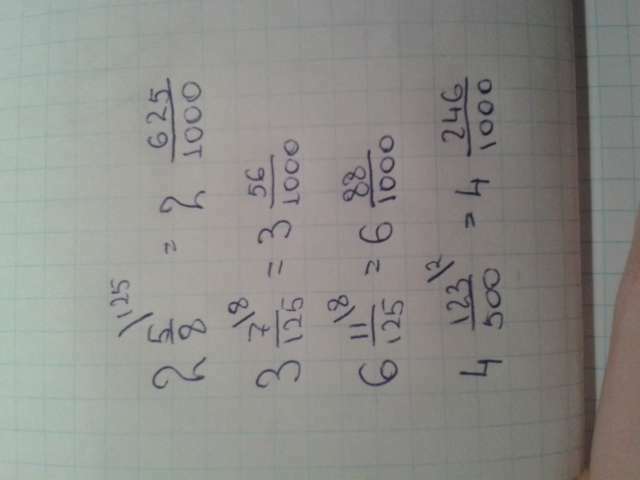 2 5/8 \125 = 2 625/1000
3 7/125 \8 = 3 56/1000
6 11/125 \8 = 6 88/1000
4 123/500 \2 = 4 246/1000